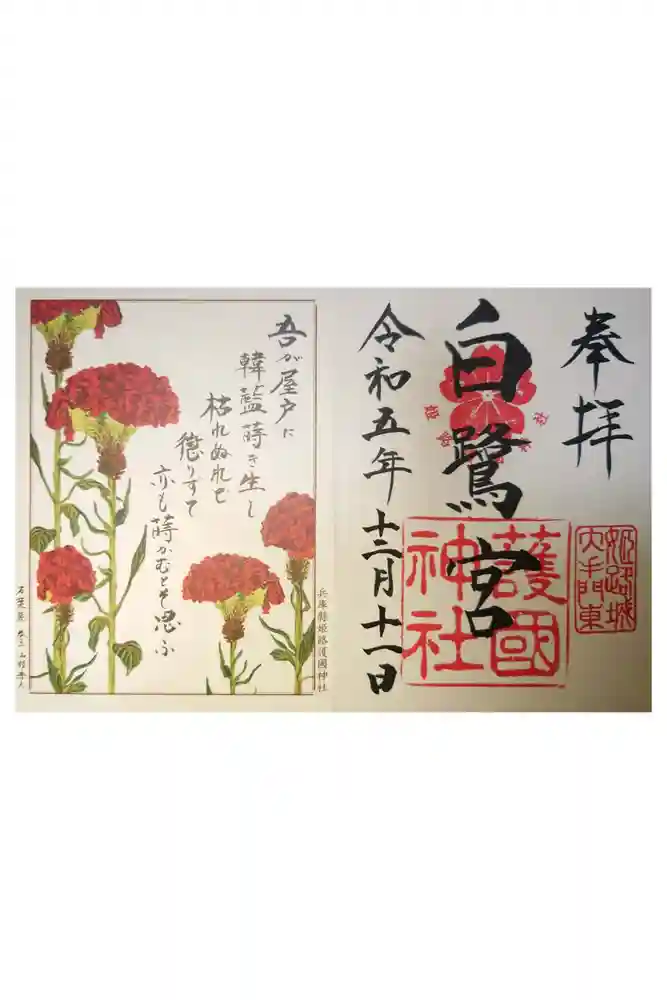 奉拝
姫路城
大手門東
白鷺宮
護國
神社
令和五年十二月十一日
吾が屋戸に
韓藍蒔き生し
枯れぬれど
懲りずて
亦も蒔かむとぞ思ふ
兵庫縣姫路護國神社